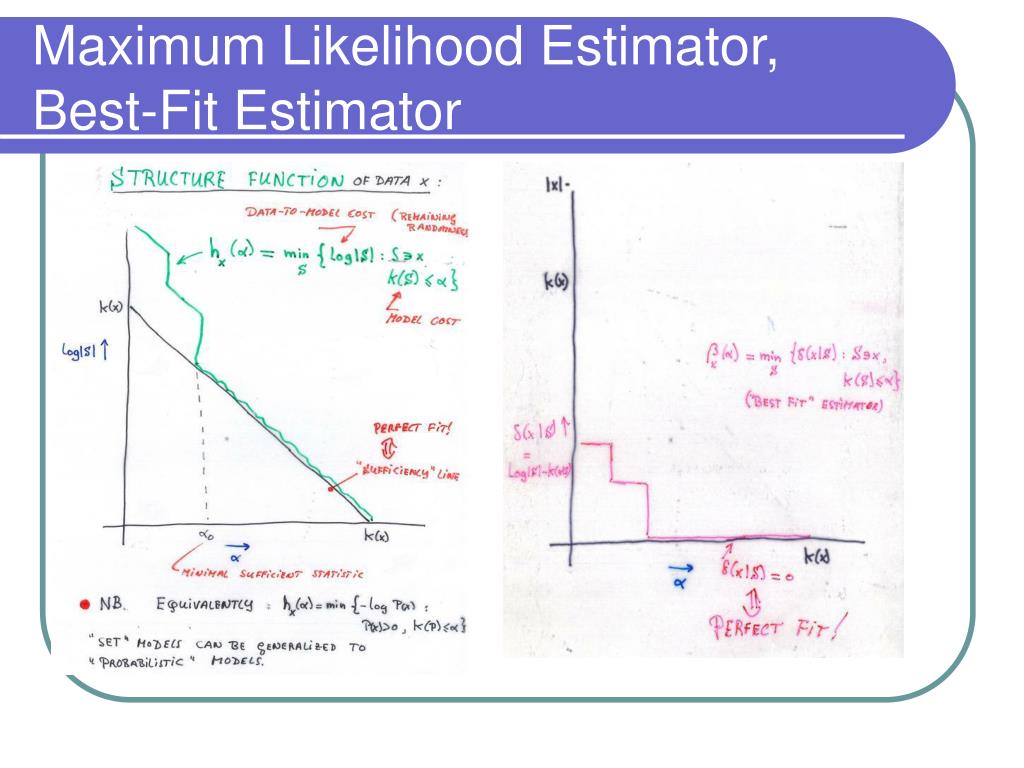 Maximum Likelihood Estimator,
Best-Fit Estimator
STRUCTURE FUNCTION OF DATA X :
DATA-TO-MODEL COST (REMAINING
RANDOMNESS
hₓ(α) = min {log|S| : S∋x
S
K(S) ≤ α}
MODEL COST
K(x)
log|S| ↑
PERFECT FIT!
"SUFFICIENCY" LINE
α₀
K(x)
→
α
MINIMAL SUFFICIENT STATISTIC
NB. EQUIVALENTLY : hₓ(α) = min {-log P(x) :
P(x)>0, K(P) ≤ α}
"SET" MODELS CAN BE GENERALIZED TO
"PROBABILISTIC" MODELS.
|x|-
K(x)
βₓ(α) = min {δ(x|S) : S∋x,
S
K(S)≤α}
("BEST FIT" ESTIMATOR)
δ(x|S) ↑
=
log|S|-K(x|S)
K(x)
→
α
δ(x|S) = 0
PERFECT FIT!